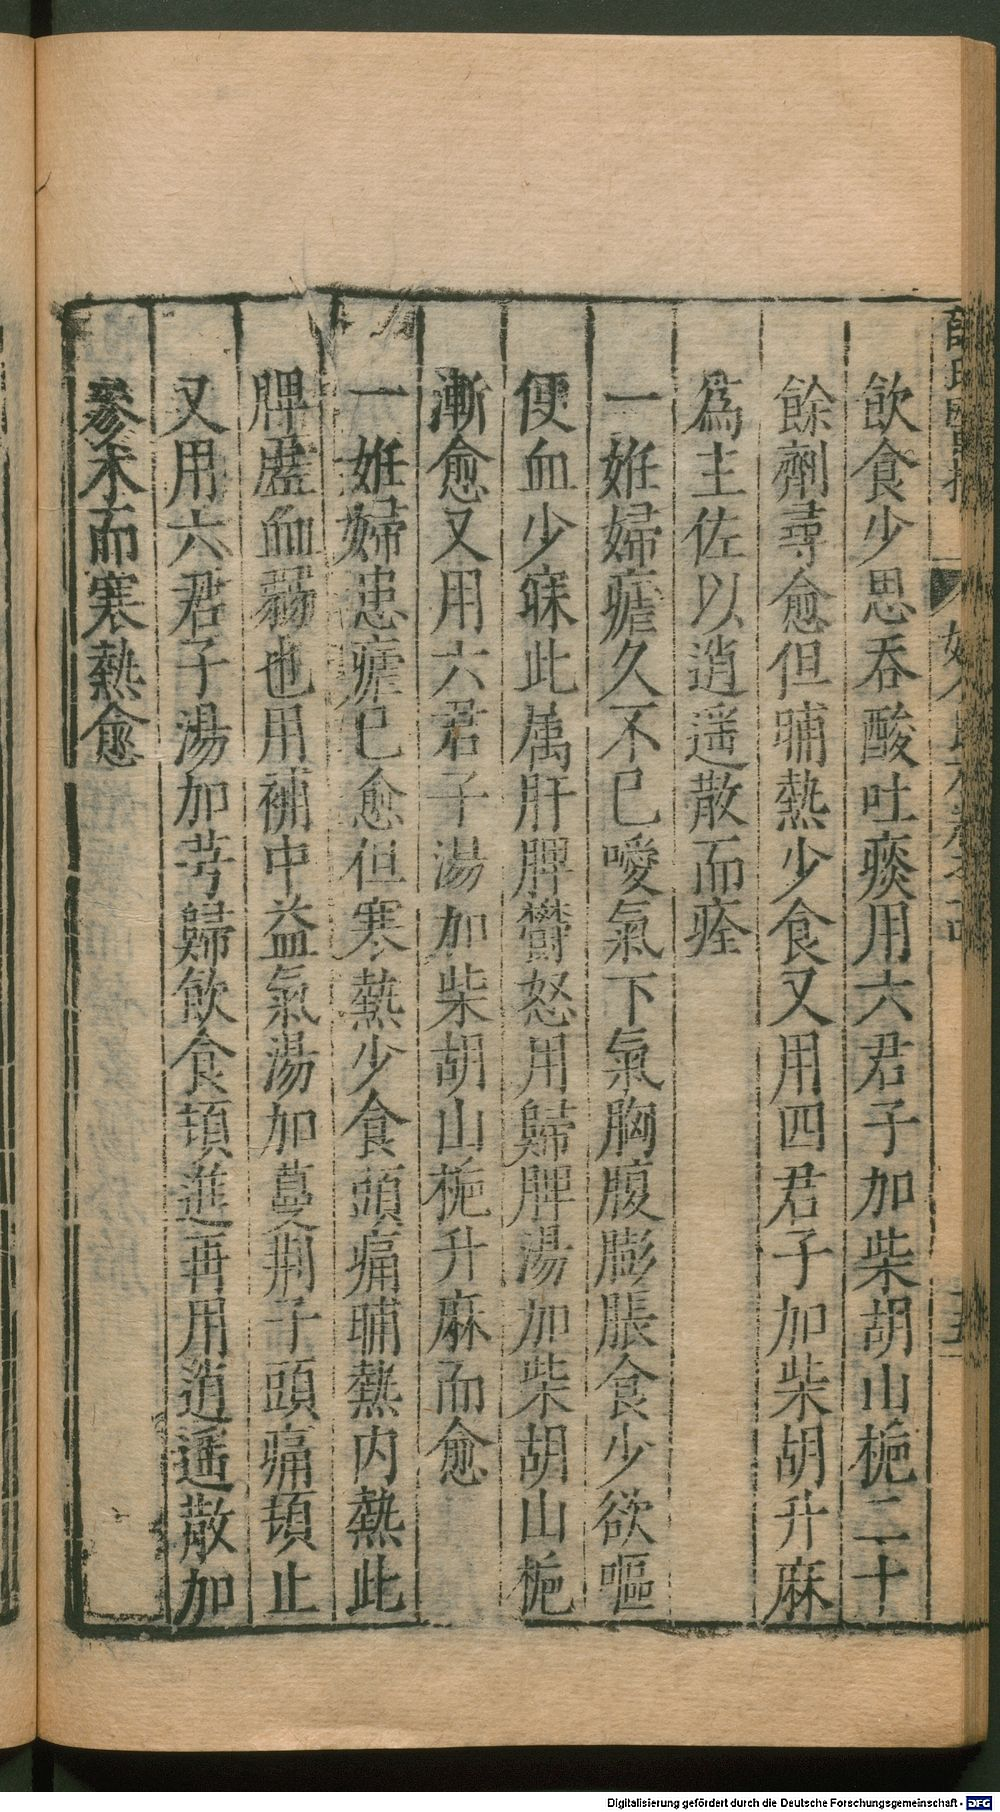 飲食少思呑酸吐痰用六君子加柴胡山梔二十
餘劑尋愈但晡熱少食又用四君子加柴胡升麻
為主佐以逍遥散而痊
一姙婦瘧久不已噯氣下氣胸腹膨脹食少欲嘔
便血少寐此属肝脾鬱怒用歸脾湯加柴胡山梔
漸愈又用六君子湯加柴胡山梔升麻而愈
一姙婦患瘧已愈但寒熱少食頭痛晡熱内熱此
脾虛血弱也用補中益氣湯加蔓荆子頭痛頓止
又用六君子湯加芎歸飲食頓進再用逍遥散加
參术而寒熱愈
Digitalisierung gefördert durch die Deutsche Forschungsgemeinschaft - DFG